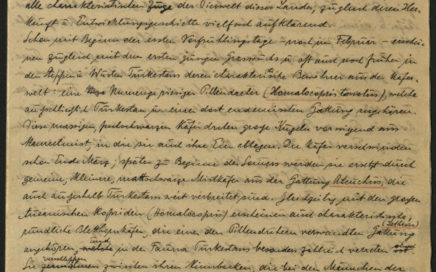 alle charakteristischen Züge der Tierwelt dieses Landes, zugleich deren Her-
kunft u Entwicklungsgeschichte vielfach aufklärend.
Schon mit Beginn der ersten Vorfrühlingstage - noch im Februar - erschei-
nen zugleich mit den ersten jungen Grasmücken oft auch noch früher in
den Steppen u Wüsten Turkestans deren charakteristische Bewohner aus der Käfer-
welt: eine Menge riesiger Pillendreher (Homalocopris tmolus), welche
ausschließlich Turkestan u einer dort endemischen Gattung angehören.
Diese massigen, pechschwarzen Käfer drehen große Kugeln vorwiegend aus
in die sie auch ihre Eier ablegen. Die Käfer verschwinden
schon Ende März, später zu Beginne des Sommers werden sie ersetzt durch
gemeine, kleinere, mattschwarze Mistkäfer aus der Gattung Ateuchus, die
auch außerhalb Turkestans weit verbreitet sind. Gleichzeitig mit den großen
turanischen Kopriden (Homalocopris) erscheinen auch charakteristische,
rundliche die einer den Pillendrehern verwandten Gattung
angehören, und in der Fauna Turkestans besonders zahlreich vertreten
Sie zwischen ihren die bei den Männchen der